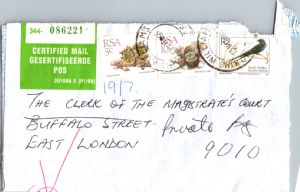 344- 086221
CERTIFIED MAIL
DESERTIFISEERDE
POS
RSA
5c
RSA
19/7.
THE CLERK OF THE MAGISTRATE'S COURT
BUFFALO STREET Private Bag
EAST LONDON 9010